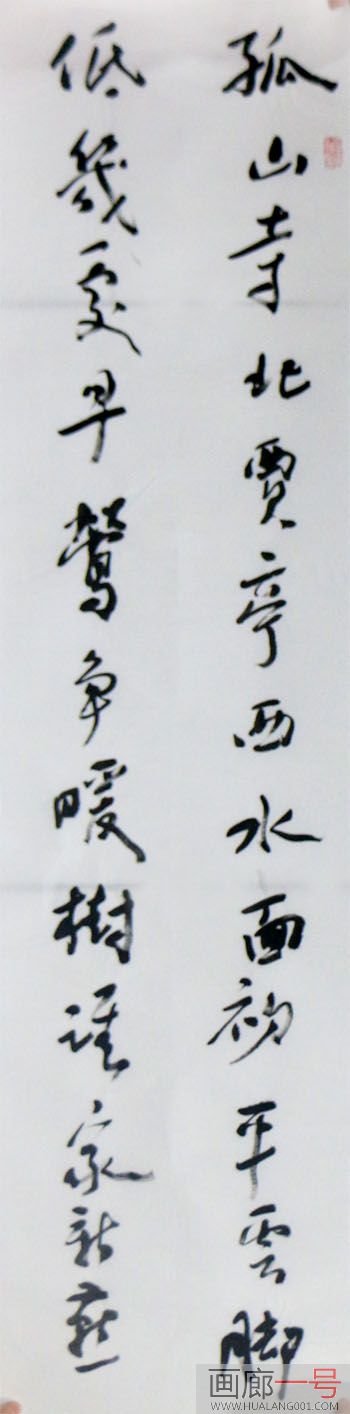 孤山寺北賈亭西水面初平雲腳
低幾處早鶯争暖樹誰家新燕
画廊一号
WWW.HUALANG001.COM